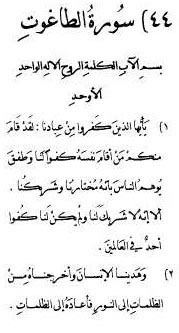 ٤٤) سُورَةُ الطَّاغُوتِ
بسم الآب الكلمة الروح الإله الواحد
الأوحد
١) يَأَيُّهَا الذِينَ كَفَرُوا مِنْ عِبَادِنَا: لَقَدْ قَامَ
مِنْكُمْ مَنْ أَقَامَ نَفْسَهُ كُفُوًا لَنَا وَطَفِقَ
يُوهِمُ النَّاسَ بِأَنَّهُ مُخْتَارُنَا وَشَرِيكُنَا.
أَلَا إِنَّهُ لَا شَرِيكَ لَنَا وَلَمْ يَكُنْ لَنَا كُفُوًا
أَحَدٌ فِي العَالَمِينَ.
٢) وَهَدَيْنَا الإِنْسَانَ وَأَخْرَجْنَاهُ مِنَ
الظُّلُمَاتِ إِلَى النُّورِ فَأَعَادَهُ إِلَى الظُّلُمَاتِ.